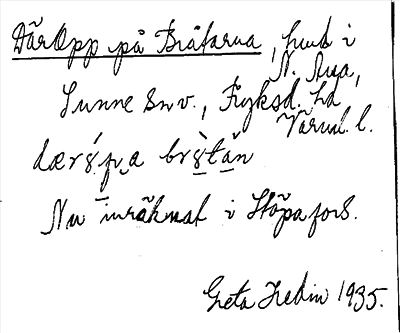 Där Opp på Bråtarna, hmd i
N. Åsa,
Sunne snv., Fryksd. hd,
Värml. l.
Nu inräknat i Stöpafors.
Greta Hedin 1935.